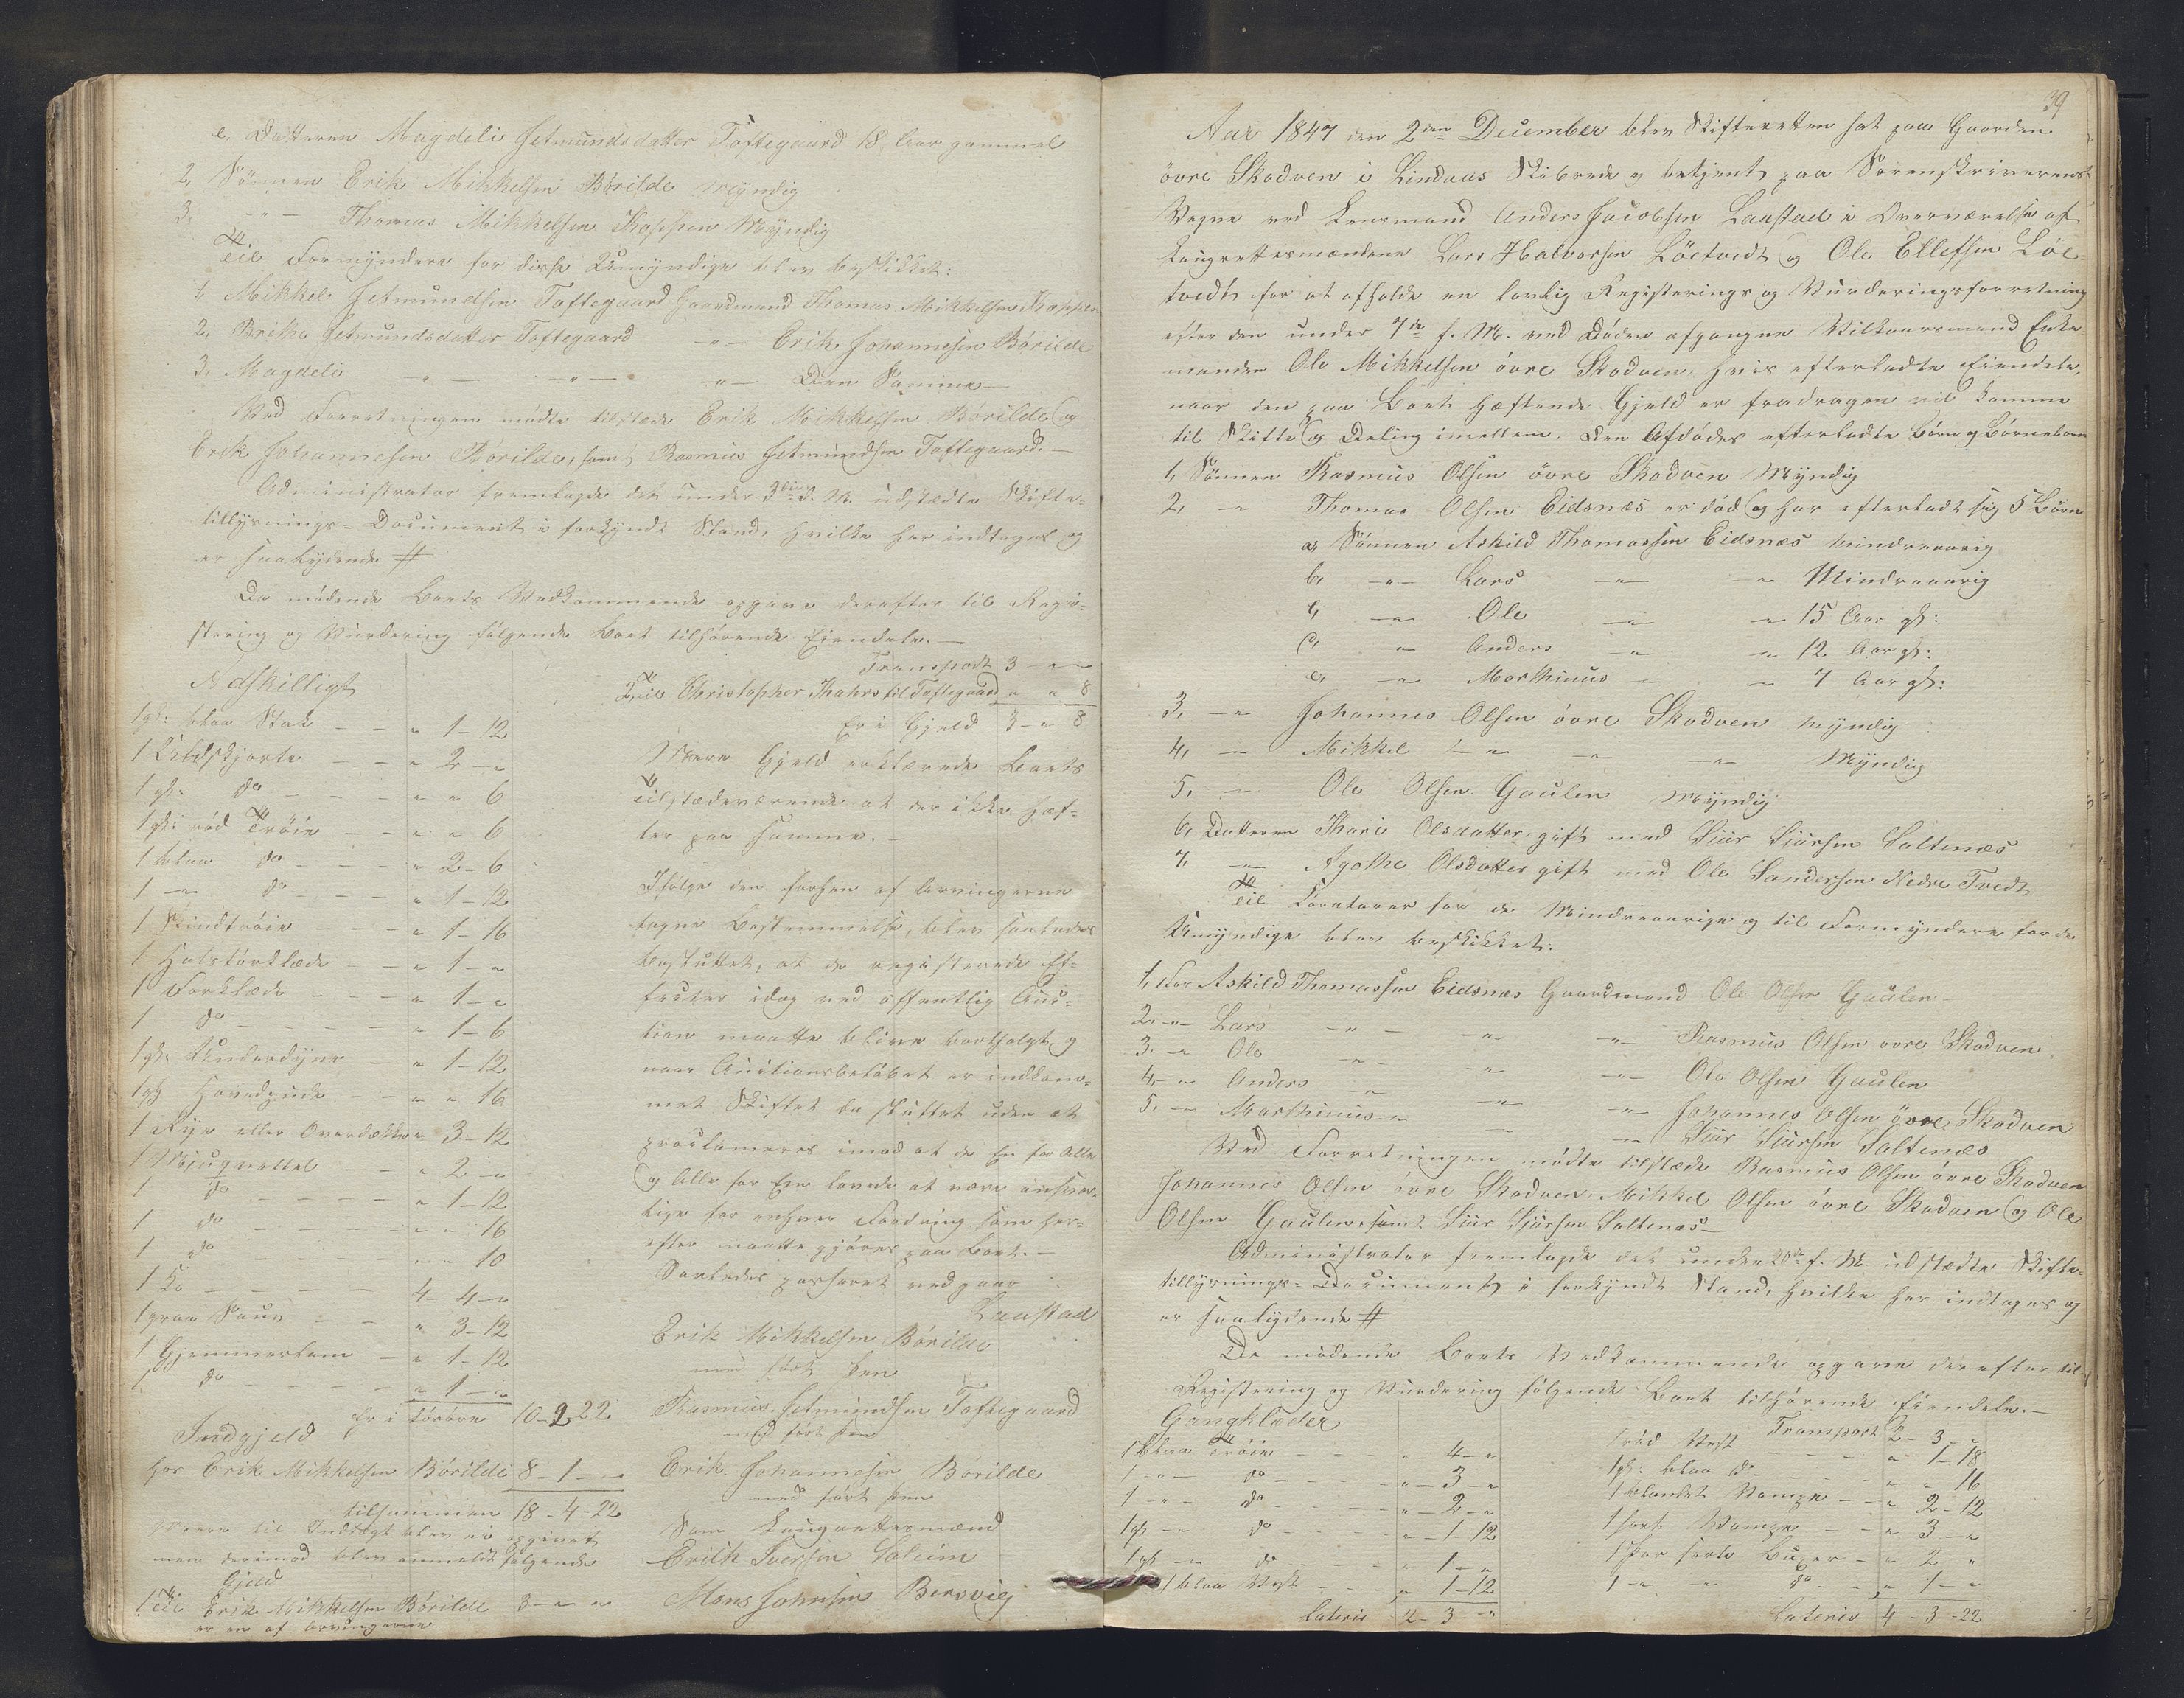 e, Datteren Magdeli Jetmundsdatter Toftegaard 18 Aar gammel
2, Sönnen Erik Mikkelsen Börilde Myndig
3, -"- Thomas Mikkelsen Koppen Myndig
Til Formyndere for disse Umyndige blev beskikket:
1, Mikkel Jetmundsen Toftegaard Gaardmand Thomas Mikkelsen Koppen
2, Britha Jetmundsdatter Toftegaard -"- Erik Johannesen Börilde
3, Magdeli -"- -"- -"- Den Samme
Ved Forretningen mødte tilstæde Erik Mikkelsen Börilde og
Erik Johannesen Börilde, samt Rasmus Jetmundsen Toftegaard.
Administrator fremlagde det under 3die d. M. udstædte Skifte-
tillysnings-Document i forkyndt Stand, hvilke her indtages og
er saalydende #
De mødende Boets Vedkommende opgave derefter til Regi-
strering og Vurdering følgende Boet tilhørende Eiendele.
Adskilligt
1 gl: blaa Stak - - " 1-12
1 Uldskjorte - - " 2 - "
1 gl: do - - - " " 6
1 gl: röd Tröie - - " " 6
1 blaa do - - - " 2-6
1 -"- do - - - " 1-12
1 Skindtröie - - - " 1-16
1 Halstörklæde - - " 1 - "
1 Forklæde - - - " 1 - "
1 do - - - - - " 1-6
1 gl: Underdyne - " 1-12
1 gl Hovedpude - - " " 16
1 Rye eller Overdække " 3-12
1 Mjugrettel - - " 2 - "
1 do - - - - " 1-12
1 do - - - - " " 16
1 do - - - - " " 10
1 Ko - - - - 4-4-"
1 graa Sauv - - " 3-12
1 Gjemmerlam - " 1-12
1 do - - - - " 1 - "
Er i Løsøre 10-2-22
Indgjeld
hos Erik Mikkelsen Börilde 8-1-"
tilsammen 18-4-22
Mere til Indtægt blev ei opgivet
men derimod blev anmeldt følgende
Gjeld
1, Til Erik Mikkelsen Börilde 3 - " "
er en af Arvingerne
Transport 3 - " "
2, Til Christopher Thahrs til Toftegaard " " 8
Er i Gjeld 3 - " 8
Mere Gjeld erklærede Boets
Tilstædeværende at der ikke hæf-
ter paa samme.
Ifølge den forhen af Arvingerne
tagne Bestemmelse, blev saaledes
besluttet, at de registrerede Ef-
fecter idag ved offentlig Auc-
tion maatte blive bortsolgt, og
naar Auctionsbeløbet er indkom-
met Skiftet da sluttet uden at
proclameres imod at de En for Alle
og Alle for Een lovede at være ansvar-
lige for enhver Fordring som her-
efter maatte gjøres paa Boet.
Saaledes passeret vedgaar
Laastad
Erik Mikkelsen Börilde
med ført Pen
Rasmus Jetmundsen Toftegaard
med ført Pen
Erik Johannesen Börilde
med ført Pen
Som Laugrettesmænd
Erich Iversen Soleim
Mons Johnsen Bersvig
39
Aar 1847 den 2den December blev Skifteretten sat paa Gaarden
övre Skodven i Lindaas Skibrede og betjent paa Sorenskriverens
Vegne ved Lensmand Anders Jacobsen Laastad i Overværelse af
Laugrettesmændene Lars Halvorsen Löetvedt og Ole Ellefsen Löe-
tvedt for at afholde en lovlig Registerings og Vurderingsforretning
efter den under 7de f. M. ved Døden afgangne Vilkaarsmand Enke-
manden Ole Mikkelsen övre Skodven, hvis efterladte Eiendele,
naar den paa Boet hæftende Gjeld er fradragen vil komme
til Skifte og Deling imellem Den Afdödes efterladte Børn og Børnebørn
1, Sønnen Rasmus Olsen övre Skodven Myndig
2, -"- Thomas Olsen Eidsnæs er død og har efterladt sig 5 Børn
a, Sønnen Askild Thomassen Eidsnæs Mindreaarig
b, -"- Lars -"- -"- Mindreaarig
c, -"- Ole -"- -"- 15 Aar gl:
d, -"- Anders -"- -"- 12 Aar gl:
e, -"- Marthinus -"- -"- 7 Aar gl:
3, -"- Johannes Olsen övre Skodven Myndig
4, -"- Mikkel -"- -"- -"- Myndig
5, -"- Ole Olsen Gaulen Myndig
6, Datteren Kari Olsdatter gift med Siur Siursen Saltenæs
7, -"- Agathe Olsdatter gift med Ole Sandersen Nedre Tvedt
Til Curatorer for de Mindreaarige og til Formyndere for de
Umyndige blev beskikket:
1, For Askild Thomassen Eidsnæs Gaardmand Ole Olsen Gaulen
2, -"- Lars -"- -"- -"- Rasmus Olsen övre Skodven
3, -"- Ole -"- -"- -"- Ole Olsen Gaulen
4, -"- Anders -"- -"- -"- Johannes Olsen övre Skodven
5, -"- Marthinus -"- -"- -"- Siur Siursen Saltenæs
Ved Forretningen mødte tilstæde Rasmus Olsen övre Skodven
Johannes Olsen övre Skodven, Mikkel Olsen övre Skodven og Ole
Olsen Gaulen, samt Siur Siursen Saltenæs
Administrator fremlagde det under 20de f. M. udstædte Skifte-
tillysnings-Document i forkyndt Stand, hvilke her indtages og
er saalydende #
De mødende Boets Vedkommende opgave derefter til
Registering og Vurdering følgende Boet tilhørende Eiendele.
Gangklæder
1 blaa Tröie - - - " 4 - "
1 -"- do - - - " 3 - "
1 -"- do - - - " 2 - "
1 gl -"- do - - - " 1-12
1 gl -"- do - - - " 1 - "
1 blaa Vest - - - " 1-12
Lateris 2-3-"
Transport 2-3-"
1 röd Vest - - - " 1-18
1 gl: blaa do - - - " " 16
1 blandet Vampe - - " 2-12
1 sort Vampe - - " 3 - "
1 Par sorte Buxer - " 2 "
1 -"- -"- do - - " 1 - "
Lateris 4-3-22